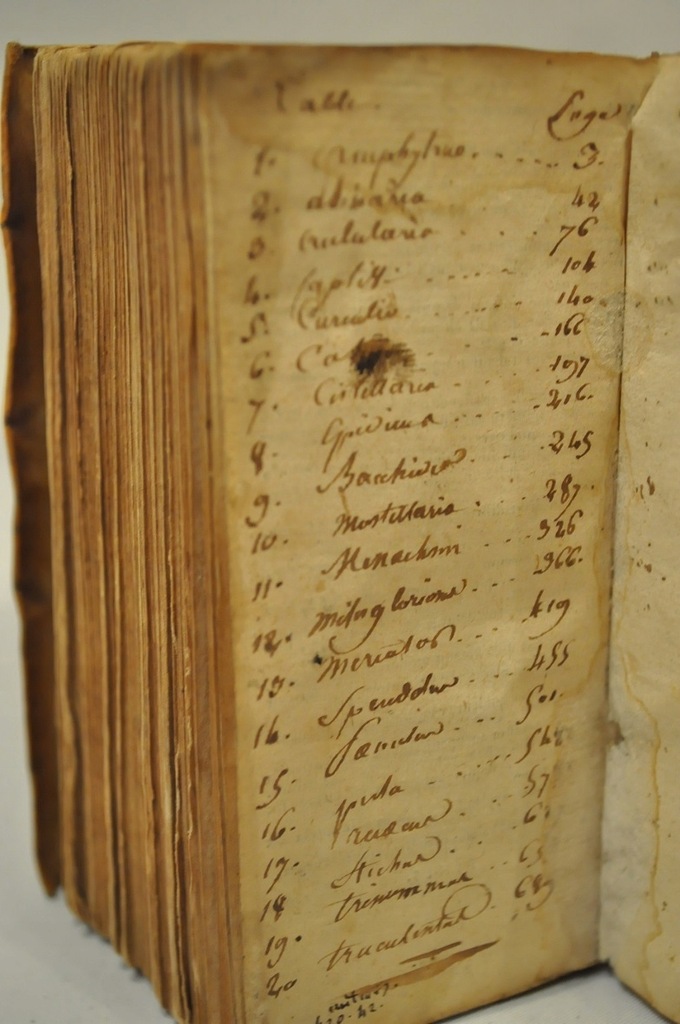 Table. Page
1. Amphytruo. 3.
2. asinaria 42
3. Aulularia 76
4. Captiv. 104
5. Curculio. 140
6. 166
7. Cistellaria 197
8 Epidicus 216.
9. Bacchides 245
10. Mostellaria 287
11. Menachmi 326
12. Miles gloriosus 366.
13. Mercator 419
14. Speudolus 455
15. Pænulus 501.
16. persa
17. rudens
18 Stichus
19. trinummus
20 truculentus 689